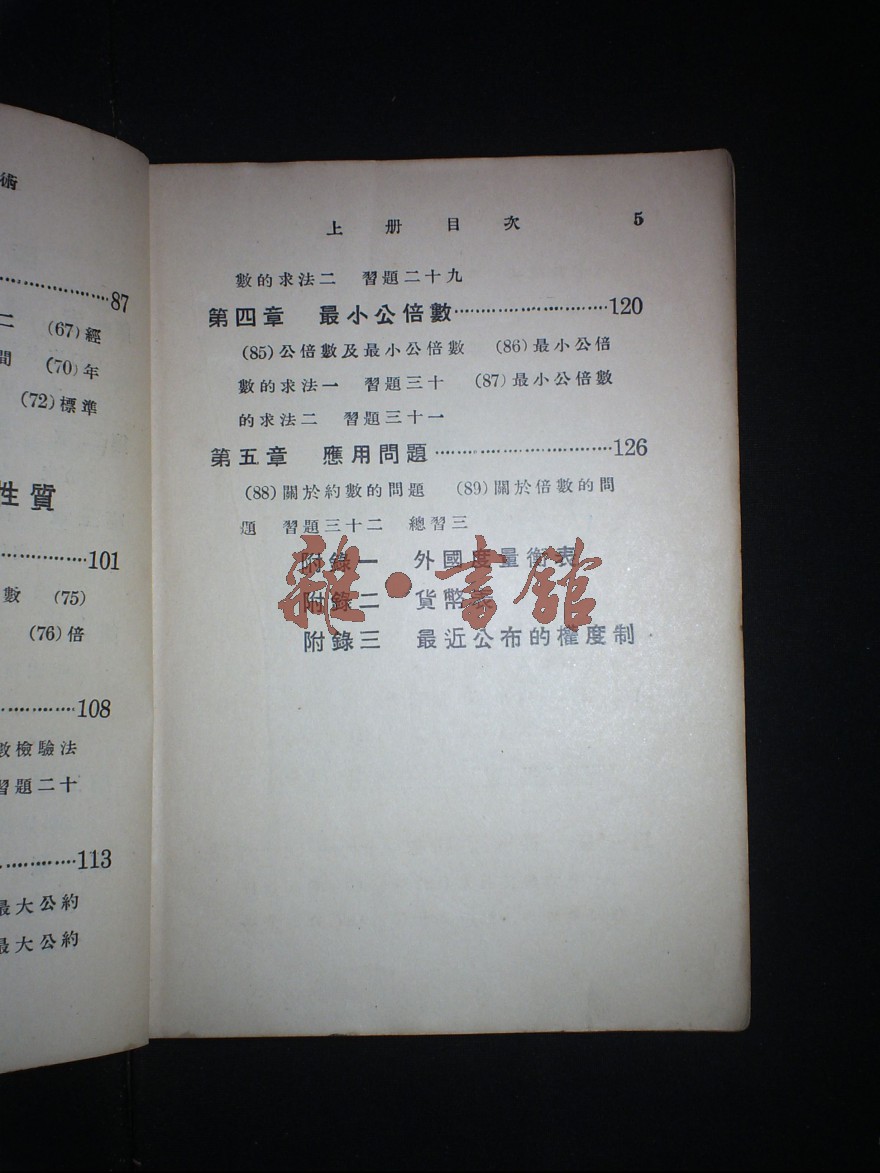 術
87
二 (67)經
間 (70)年
(72)標準
性質
101
數 (75)
(76)倍
108
數檢驗法
習題二十
113
最大公約
最大公約
上册目次 5
數的求法二 習題二十九
第四章 最小公倍數 120
(85)公倍數及最小公倍數 (86)最小公倍
數的求法一 習題三十 (87)最小公倍數
的求法二 習題三十一
第五章 應用問題 126
(88)關於約數的問題 (89)關於倍數的問
題 習題三十二 總習三
附錄一 外國度量衡表
附錄二 貨幣表
附錄三 最近公布的權度制
雜·書館